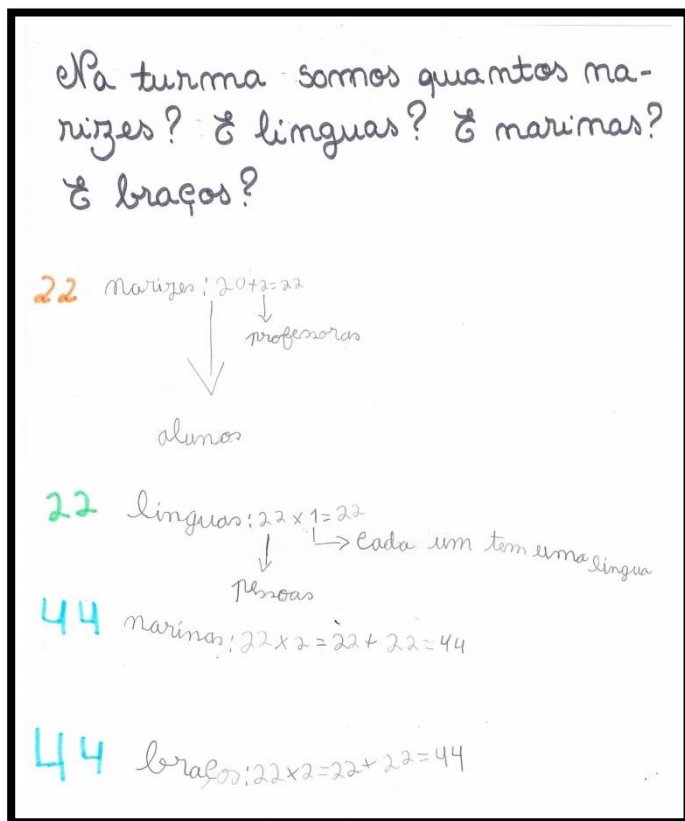 Na turma somos quantos na-
rizes? E línguas? E narinas?
E braços?
22 narizes: 20+2=22
professoras
alunos
22 línguas: 22 x 1 = 22
cada um tem uma língua
pessoas
44 narinas: 22 x 2 = 22 + 22 = 44
44 braços: 22 x 2 = 22 + 22 = 44